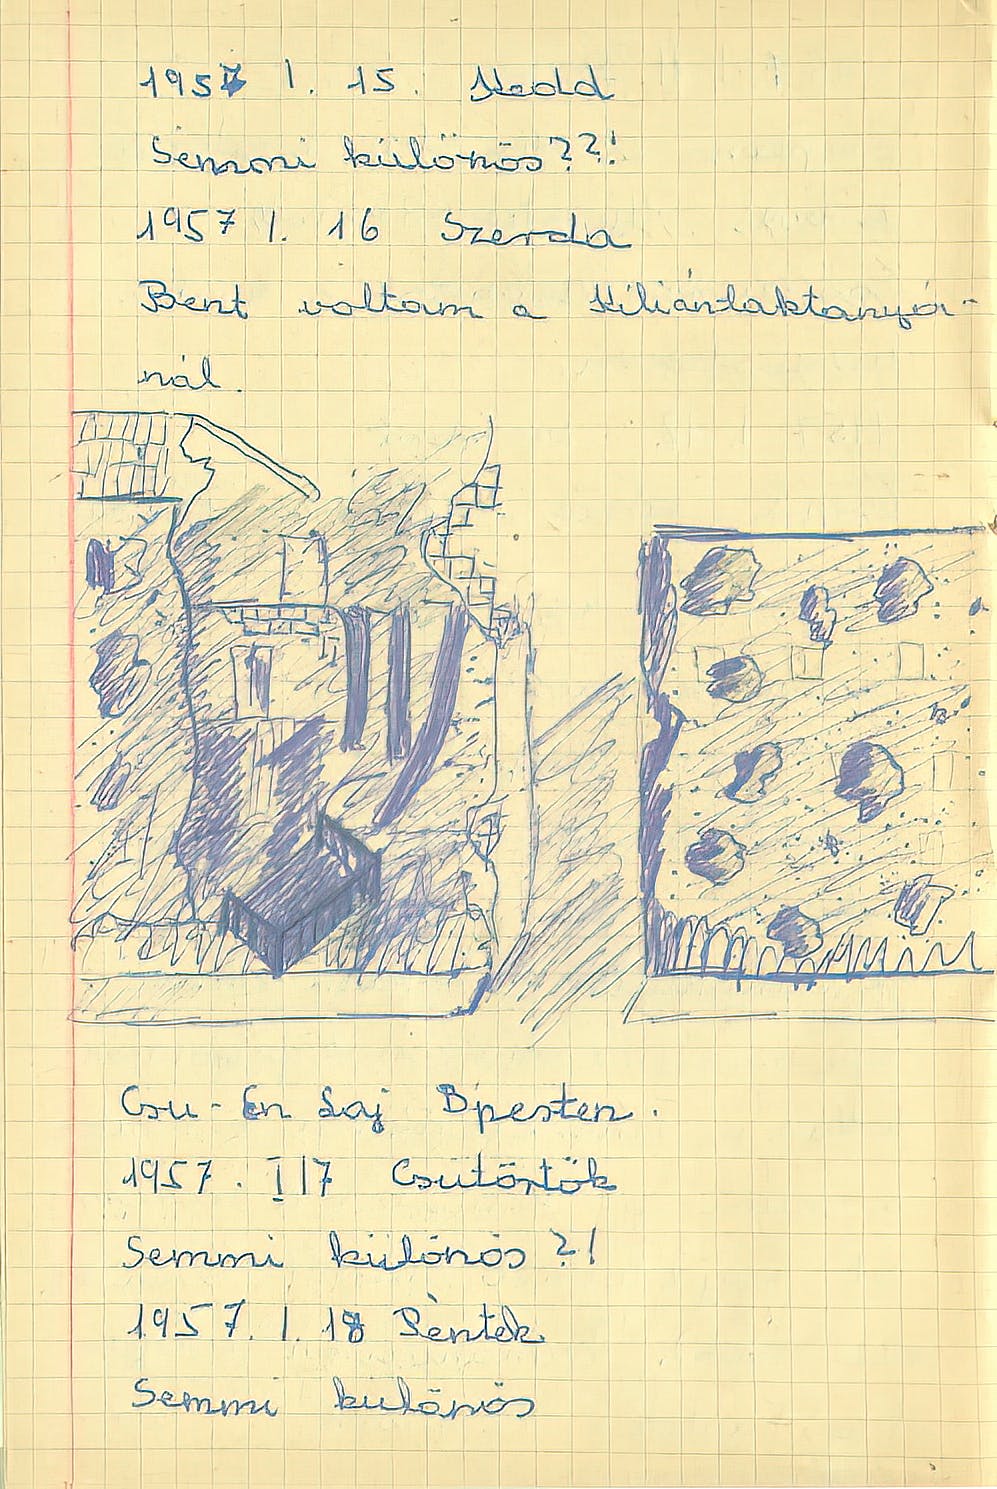 1957 I. 15. Kedd
Semmi különös??!
1957 I. 16 Szerda
Bent voltam a Kiliánlaktanyá-
nál.
Csu-En Laj Bpesten.
1957. I 17 Csütörtök
Semmi különös?!
1957. I. 18 Péntek
Semmi különös